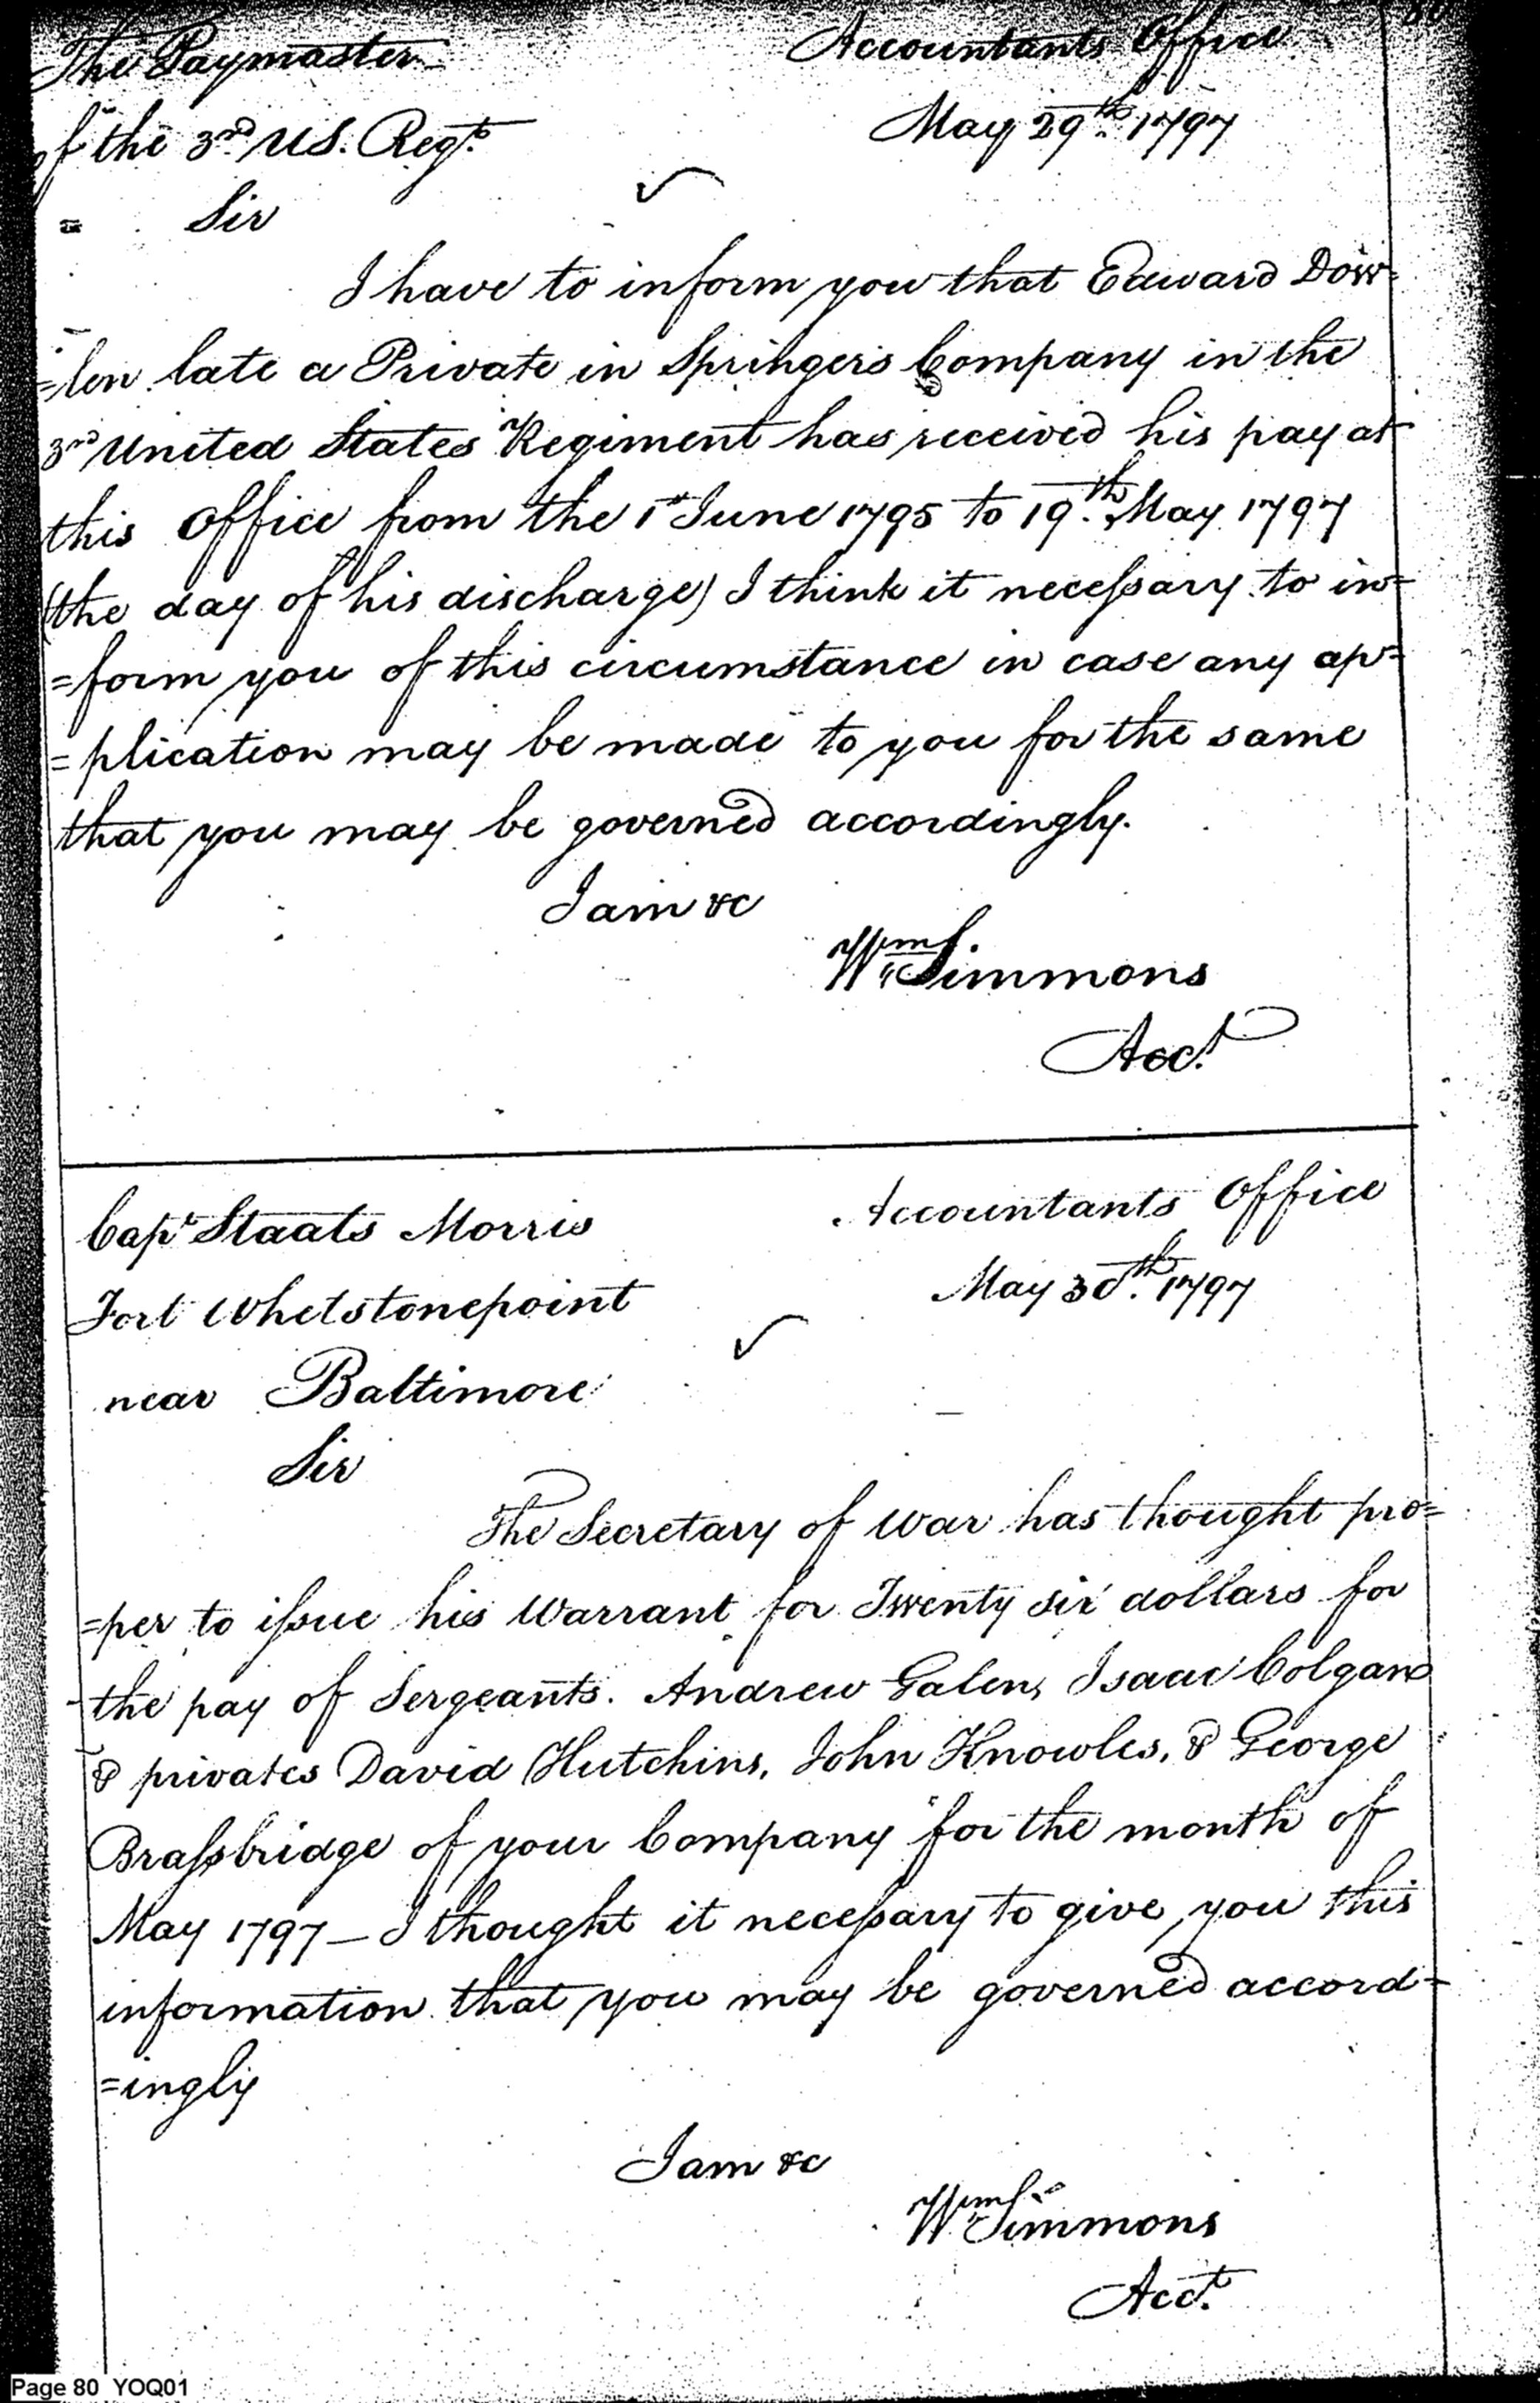 80
The Paymaster Accountants Office
of the 3rd US. Regt. May 29th. 1797
Sir
I have to inform you that Edward Dow=
=len late a Private in Springers Company in the
3rd United States Regiment has received his pay at
this Office from the 1st June 1795 to 19th. May 1797
(the day of his discharge) I think it necessary to in=
=form you of this circumstance in case any ap=
=plication may be made to you for the same
that you may be governed accordingly.
I am &c
Wm. Simmons
Acct.
Capt Staats Morris Accountants Office
Fort Whetstonepoint May 30th. 1797
near Baltimore
Sir
The Secretary of War has thought pro=
=per to issue his Warrant for Twenty six dollars for
the pay of Sergeants. Andrew Galen, Isaac Colgan
& privates David Hutchins, John Knowles, & George
Brassbridge of your Company for the month of
May 1797 — I thought it necessary to give you this
information that you may be governed accord=
=ingly
I am &c
Wm Simmons
Acct.
Page 80 YOQ01